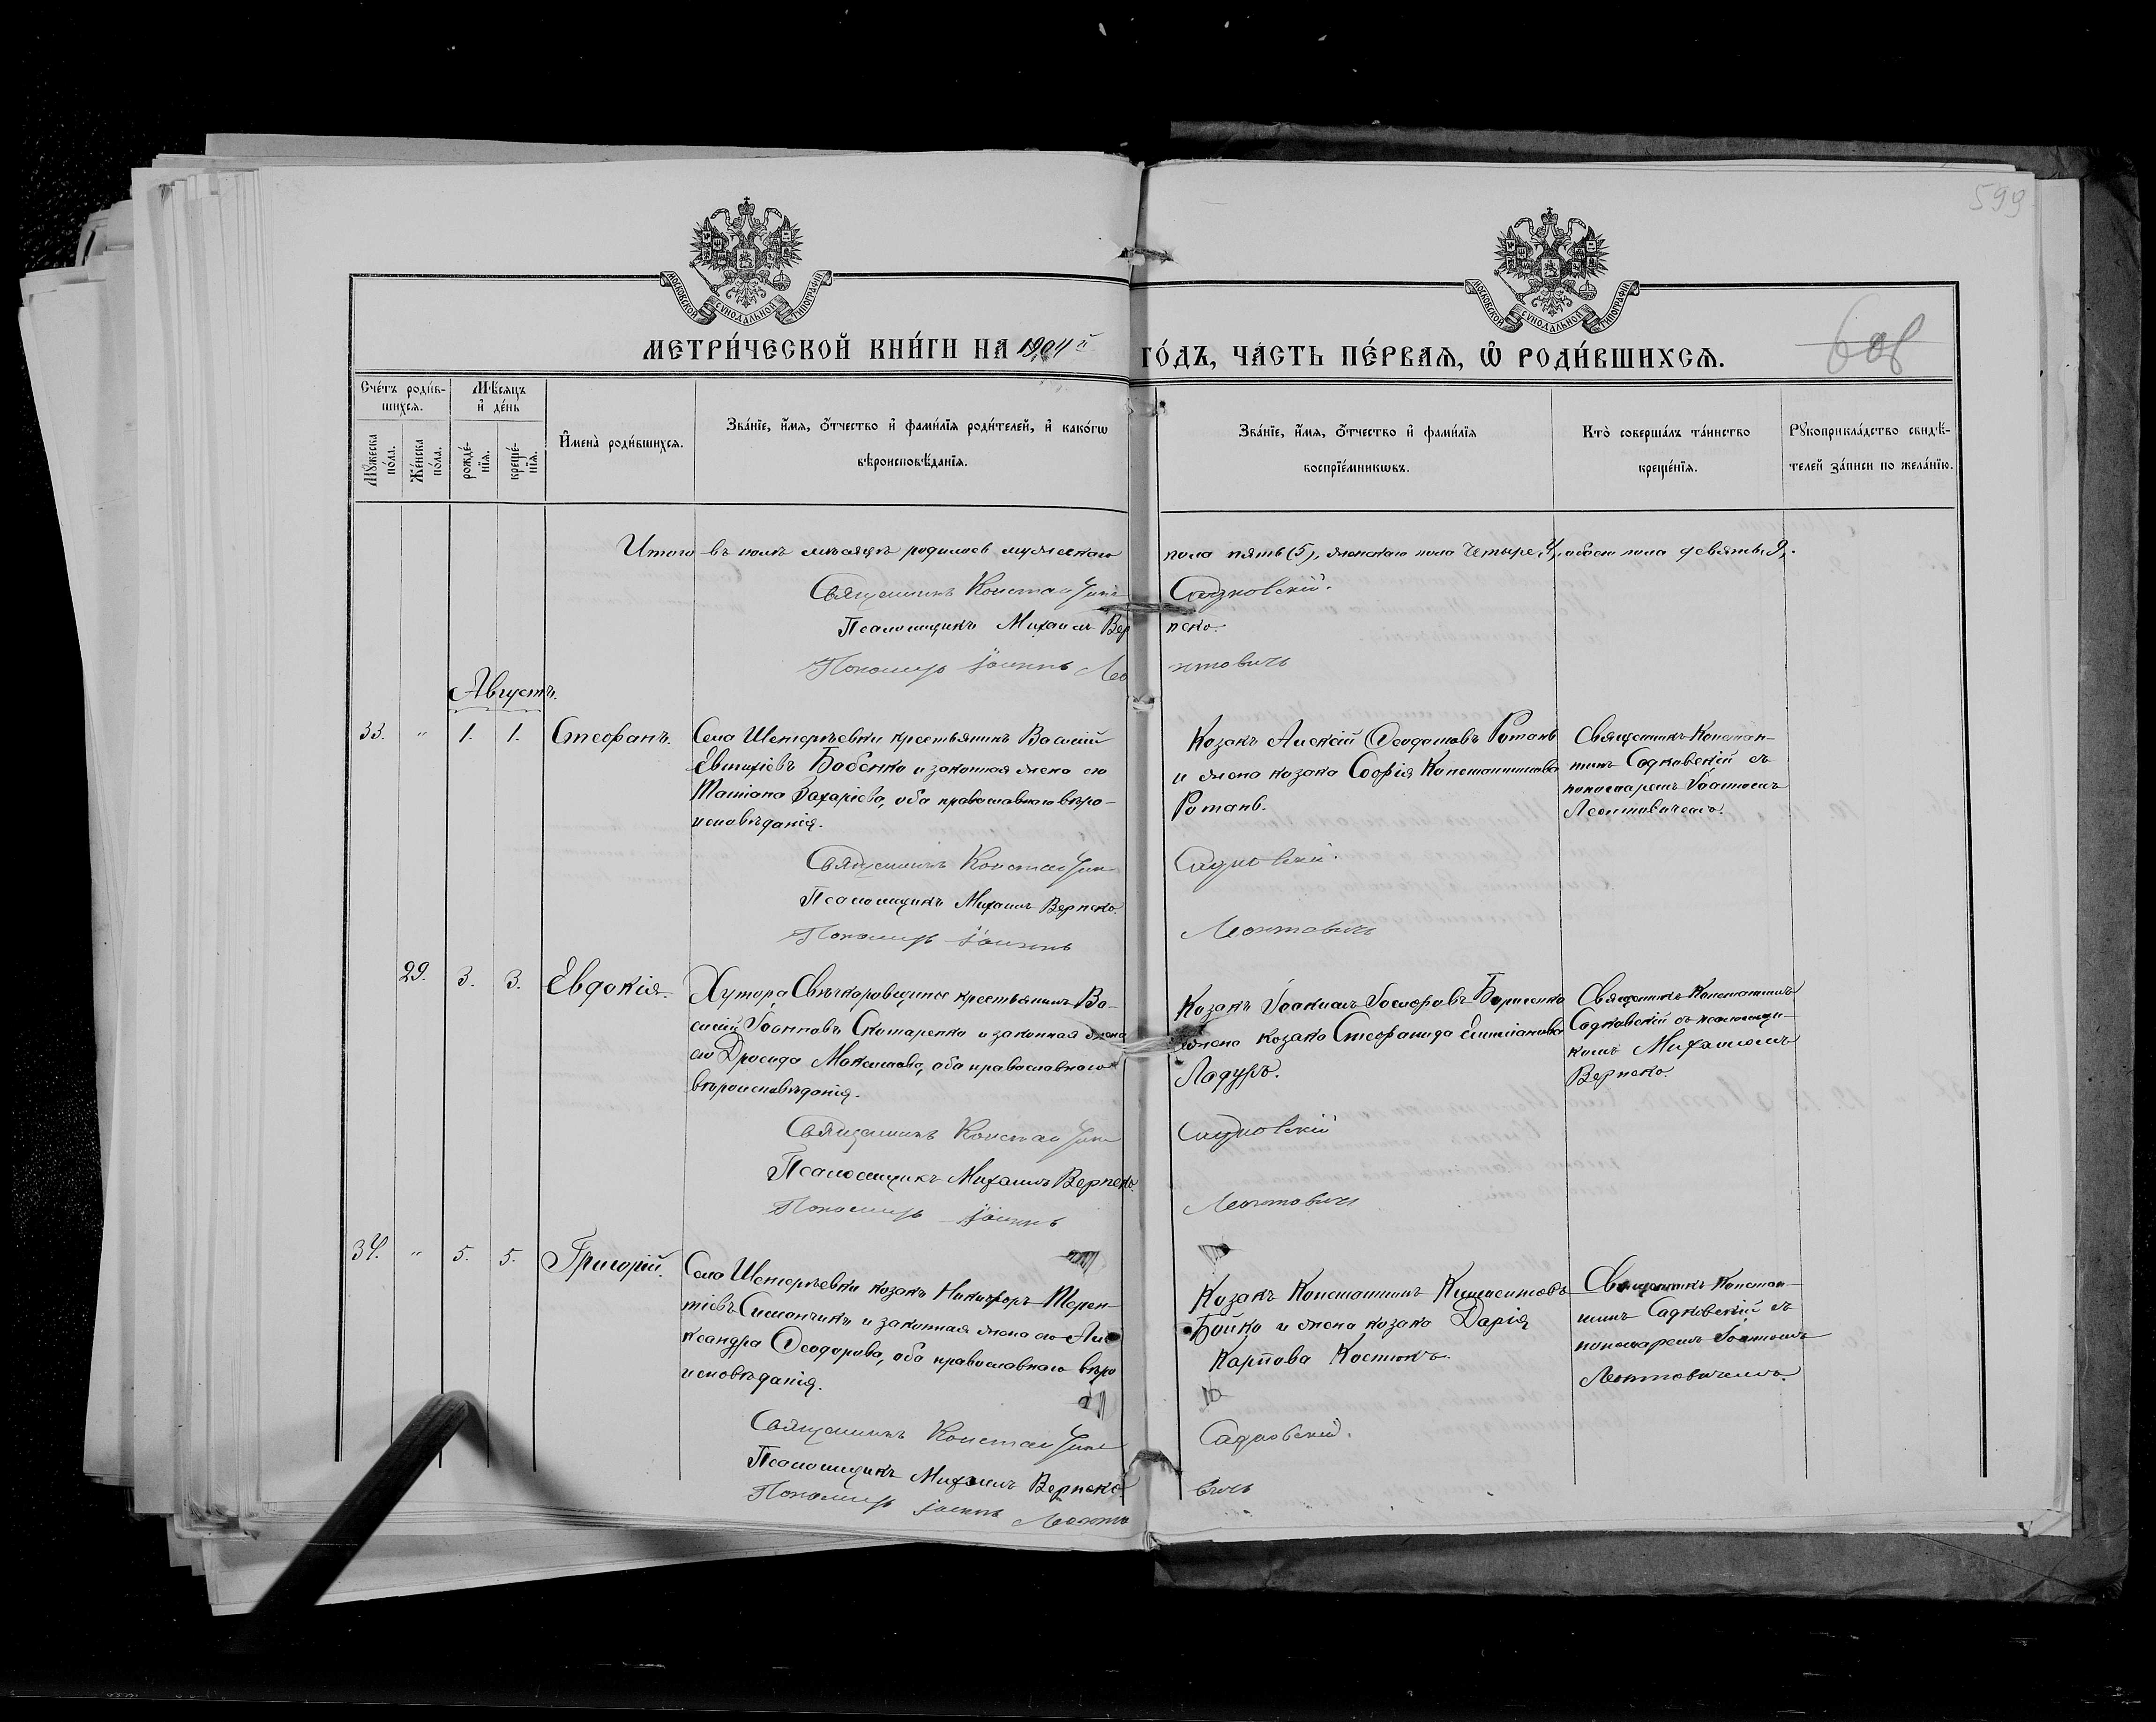 599
МОСКОВСКОЙ СѴНОДАЛЬНОЙ ТИПОГРАФІИ
МОСКОВСКОЙ СѴНОДАЛЬНОЙ ТИПОГРАФІИ
МЕТРИ́ЧЕСКОЙ КНИ́ГИ НА 1904й ГО́ДЪ, ЧА́СТЬ ПЕ́РВАѦ, Ѡ҆ РОДИ́ВШИХСѦ.
Сче́тъ роди́в-
шихсѧ.
Мꙋжеска по́ла.
Же́нска по́ла.
Мѣ́сѧцъ
и҆ де́нь
рожде́-
нїѧ.
креще́-
нїѧ.
И҆мена̀ роди́вшихсѧ.
Зва́нїе, и҆́мѧ, ѻ҆́тчество и҆ фами́лїѧ роди́телей, и҆ како́гѡ
вѣроисповѣ́данїѧ.
Зва́нїе, и҆́мѧ, ѻ҆́тчество и҆ фами́лїѧ
воспрїе́мникѡвъ.
Кто̀ соверша́лъ та́инство
креще́нїѧ.
Рꙋкоприкла́дство свидѣ́-
телей за́писи по жела́нїю.
Итого въ іюлѣ мѣсяцѣ родилось мужескаго пола пять (5), женскаго пола четыре 4, обоего пола девять 9.
Священникъ Константинъ Садковскій.
Псаломщикъ Михаилъ Вернеко.
Пономарь Іоаннъ Леонтовичъ
Августъ.
33. " 1. 1. Стефанъ.
Села Шенгреевки крестьянинъ Василій
Евтихіевъ Бабенко и законная жена его
Татіана Захаріева, оба православнаго вѣро-
исповѣданія.
Козакъ Алексій Ѳеодотовъ Ротань
и жена козака Софія Константинова
Ротань.
Священникъ Констан-
тинъ Садковскій съ
пономаремъ Іоанномъ
Леонтовичемъ.
Священникъ Константинъ Садковскій.
Псаломщикъ Михаилъ Вернеко.
Пономарь Іоаннъ Леонтовичъ
29. 3. 3. Евдокія.
Хутора крестьянинъ Ва-
силій Іоанновъ Скотаренко и законная жена
его Дросида Максимова, оба православнаго
вѣроисповѣданія.
Козакъ Іоакимъ Іосифовъ Борисенко
жена козака Стефанида
Ладуръ.
Священникъ Константинъ
Садковскій съ псаломщи-
комъ Михаиломъ
Вернеко.
Священникъ Константинъ Садковскій
Псаломщикъ Михаилъ Вернеко.
Пономарь Іоаннъ Леонтовичъ
34. " 5. 5. Григорій.
Села Шенгреевки козакъ Никифоръ Терен-
тіевъ Симончикъ и законная жена его Але
ксандра Ѳеодорова, оба православнаго вѣро
исповѣданія.
Козакъ Константинъ
Бойко и жена козака Дарія
Карпова Костюкъ.
Священникъ Констан-
тинъ Садковскій съ
пономаремъ Іоанномъ
Леонтовичемъ.
Священникъ Константинъ Садковскій.
Псаломщикъ Михаилъ Вернеко.
Пономарь Іоаннъ Леонтовичъ